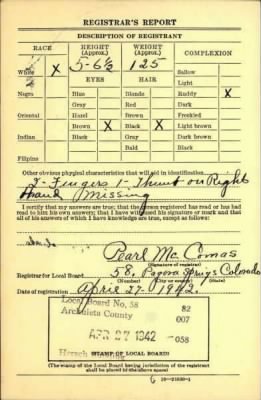 REGISTRAR'S REPORT
DESCRIPTION OF REGISTRANT
RACE HEIGHT (Approx.) WEIGHT (Approx.) COMPLEXION
White X 5-6½ 125 Sallow
EYES HAIR Light
Negro Blue Blonde Ruddy X
Gray Red Dark
Oriental Hazel Brown Freckled
Brown X Black X Light brown
Indian Black Gray Dark brown
Bald Black
Filipino
Other obvious physical characteristics that will aid in identification
2- Fingers 1- Thumb on Right
Hand missing
I certify that my answers are true; that the person registered has read or has had
read to him his own answers; that I have witnessed his signature or mark and that
all of his answers of which I have knowledge are true, except as follows:
Pearl Mc. Comas
(Signature of registrar)
Registrar for Local Board 58, Pagosa Springs Colorado
(Number) (City or county) (State)
Date of registration April 27- 1942.
Local Board No. 58 82
Archuleta County 007
APR 27 1942 058
(STAMP OF LOCAL BOARD)
(The stamp of the Local Board having jurisdiction of the registrant
shall be placed in the above space)
16—21630-1